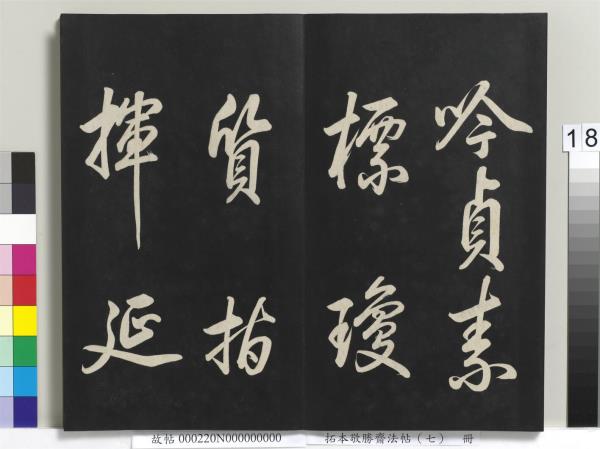 吟貞素
標瓊
質指
揮延
18
故帖000220N000000000 拓本敬勝齋法帖（七） 冊